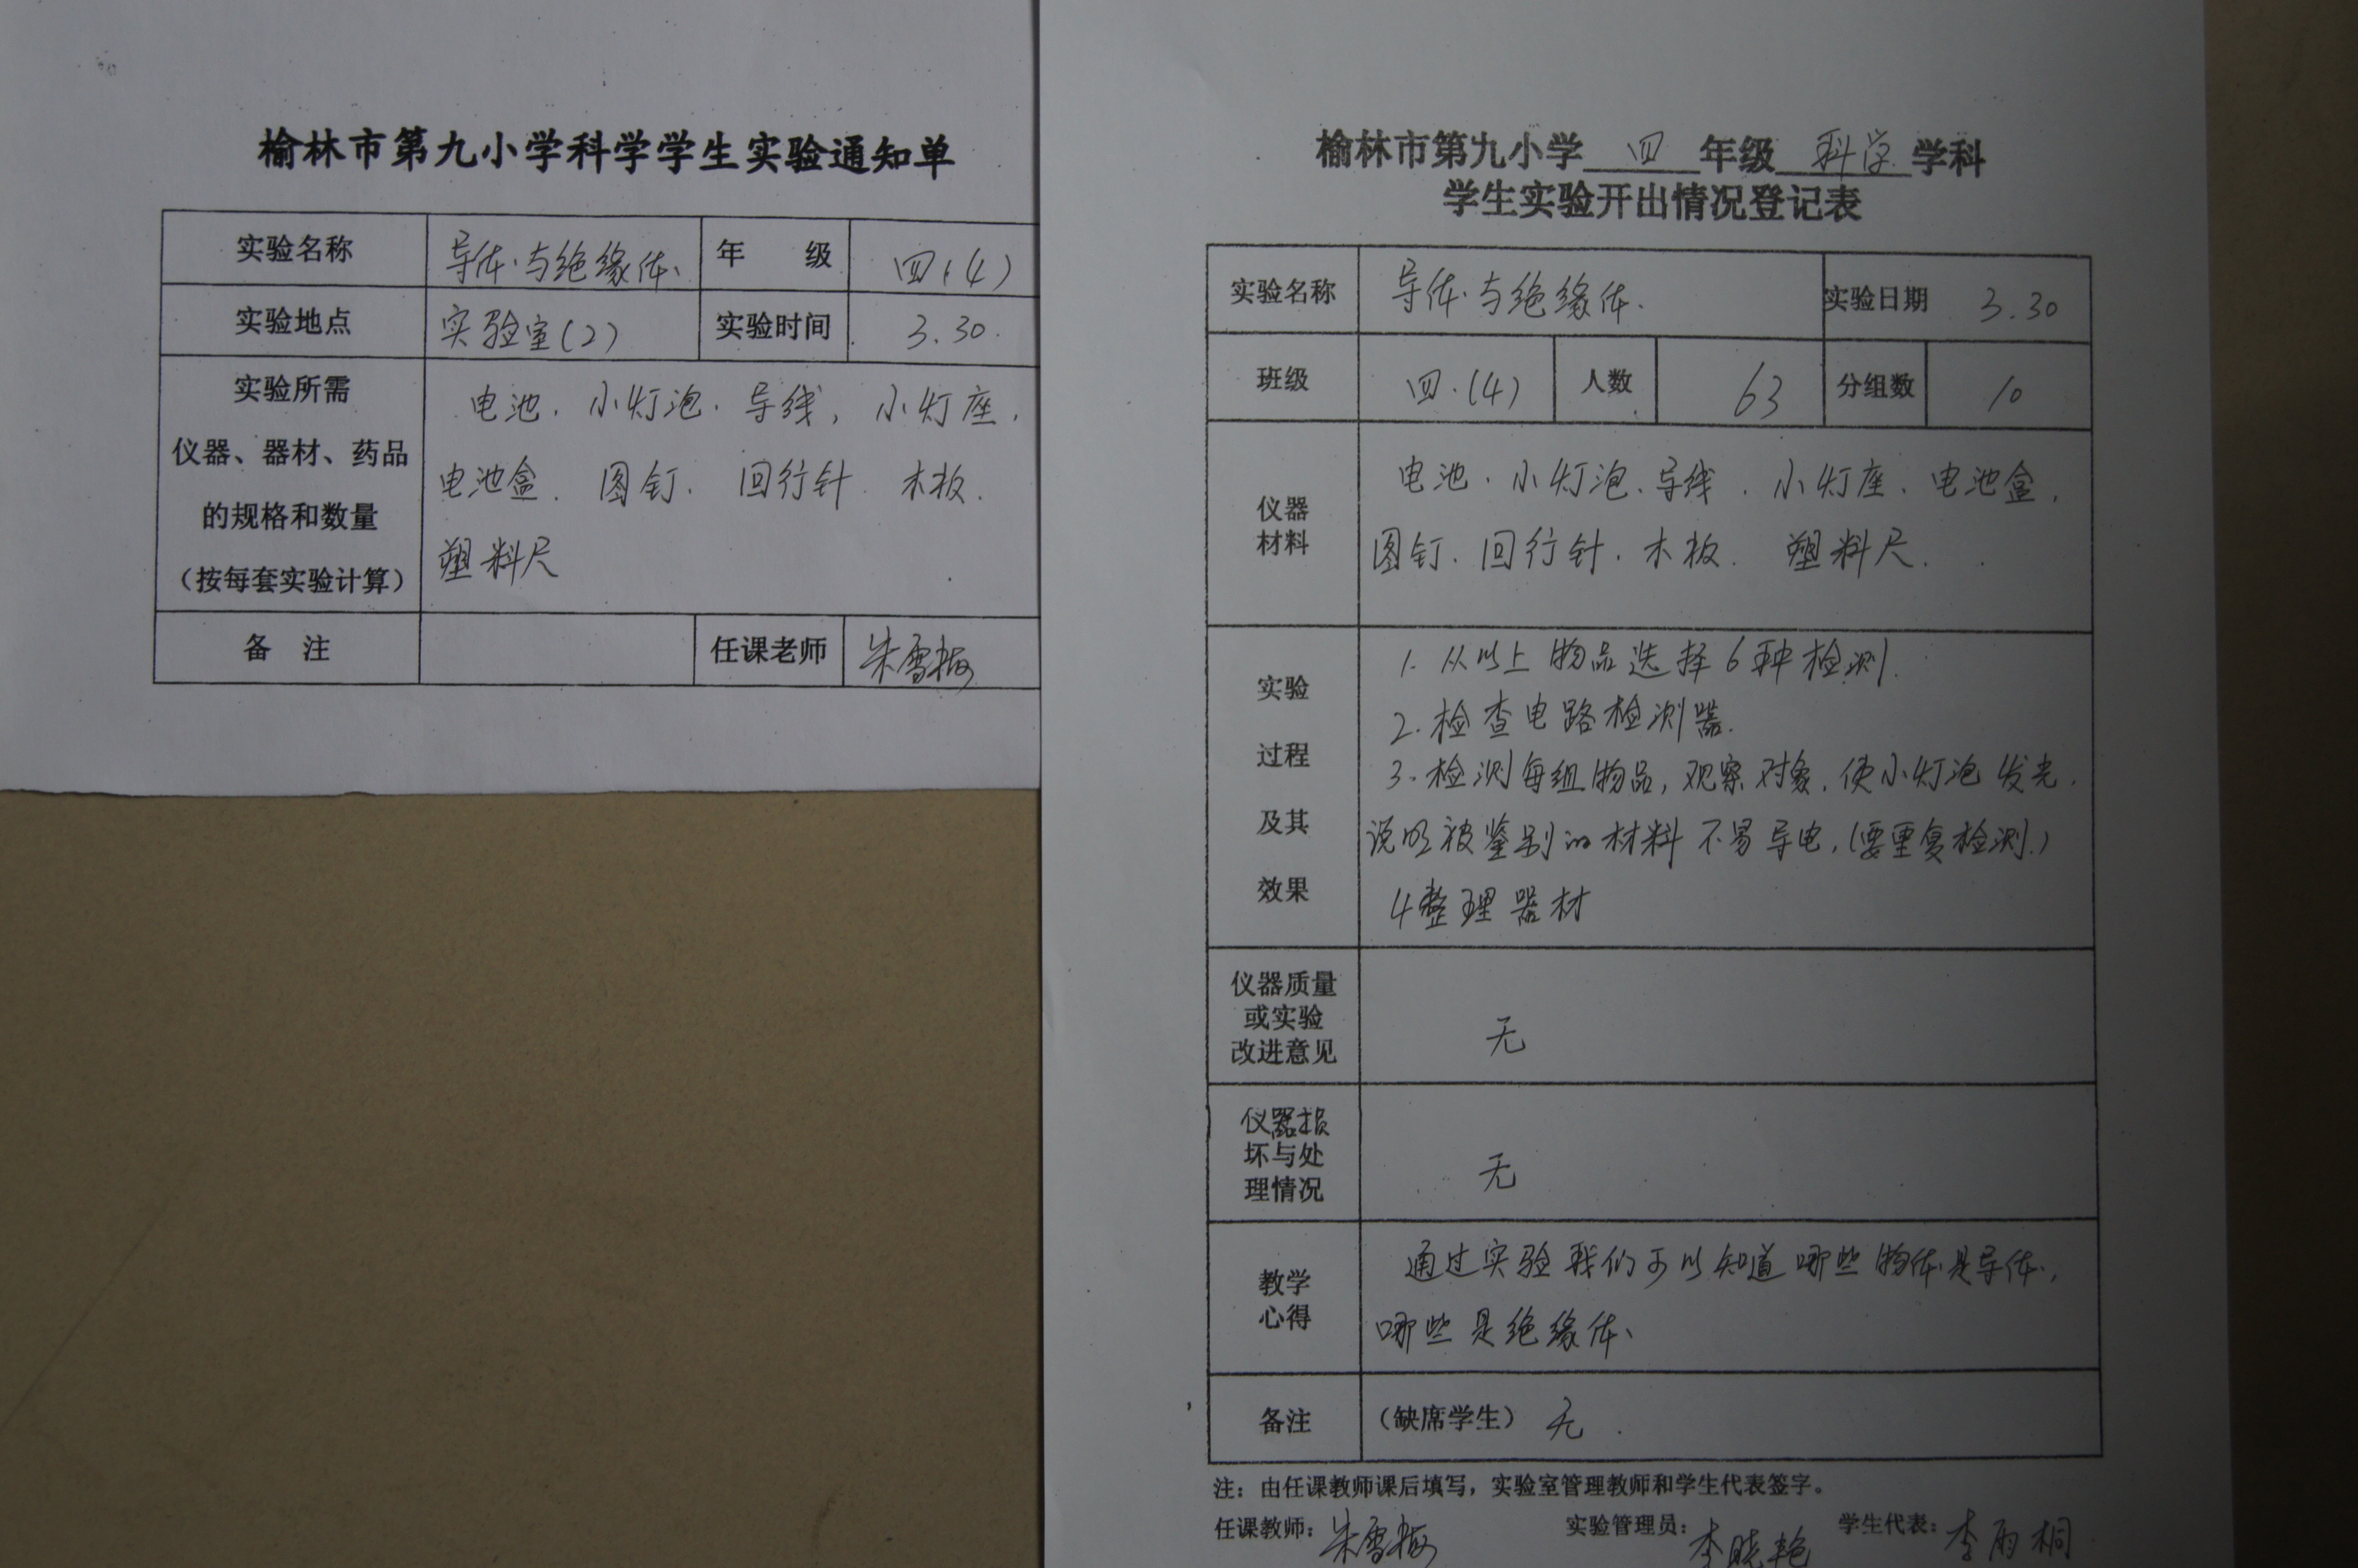 榆林市第九小学科学学生实验通知单
实验名称 导体与绝缘体、 年 级 四(4)
实验地点 实验室(2) 实验时间 3.30.
实验所需
仪器、器材、药品
的规格和数量
（按每套实验计算）
电池、小灯泡、导线，小灯座、
电池盒、图钉、回行针 木板、
塑料尺
备 注 任课老师 朱雪梅
榆林市第九小学 四 年级 科学 学科
学生实验开出情况登记表
实验名称 导体与绝缘体. 实验日期 3.30
班级 四.(4) 人数 63 分组数 10
仪器
材料
电池、小灯泡、导线、小灯座、电池盒、
图钉、回行针、木板、塑料尺.
实验
过程
及其
效果
1. 从以上物品选择6种检测.
2. 检查电路检测器.
3. 检测每组物品，观察对象，使小灯泡发光.
说明被鉴别的材料不易导电，(要重复检测.)
4整理器材
仪器质量
或实验
改进意见
无
仪器损
坏与处
理情况
无
教学
心得
通过实验我们可以知道哪些物体是导体，
哪些是绝缘体、
备注 （缺席学生） 无.
注：由任课教师课后填写，实验室管理教师和学生代表签字。
任课教师：朱雪梅 实验管理员：李晓艳 学生代表：李雨桐